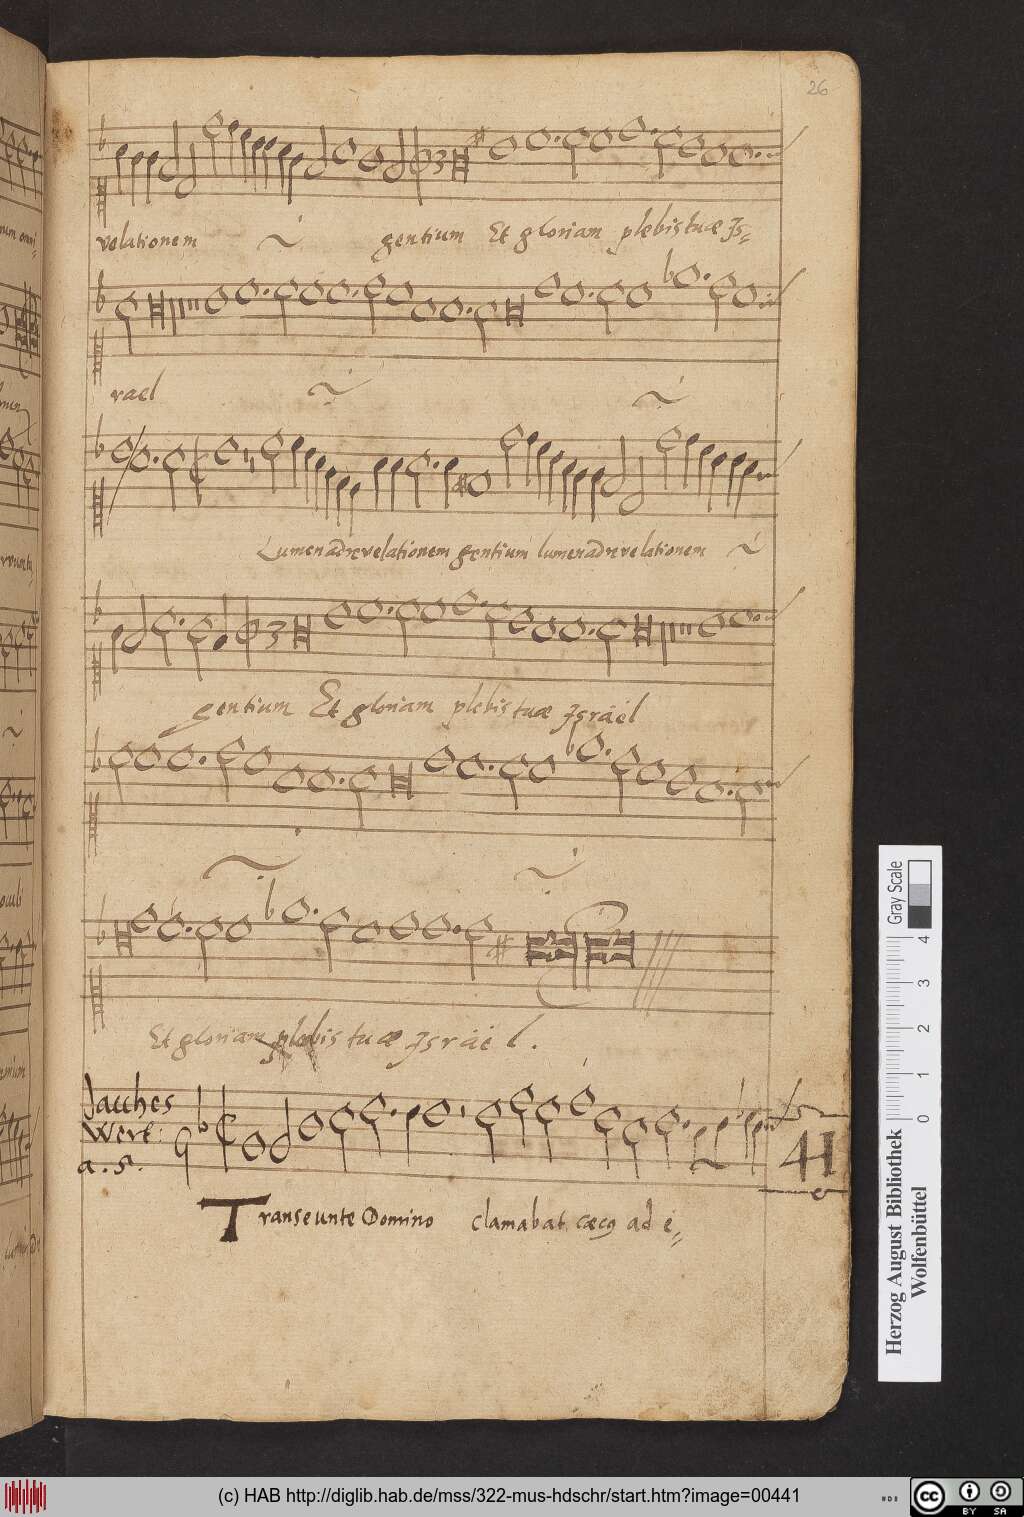 26
velationem gentium Et gloriam plebis tuæ Js=
rael
Lumen ad revelationem gentium lumen ad revelationem
gentium Et gloriam plebis tuæ Jsrael
Et gloriam plebis tuæ Jsrael.
Jacches
Wert:
a. 5.
41
Transeunte Domino clamabat cæcq ad e=
Gray Scale
0 1 2 3 4
Herzog August Bibliothek
Wolfenbüttel
(c) HAB http://diglib.hab.de/mss/322-mus-hdschr/start.htm?image=00441
cc BY SA